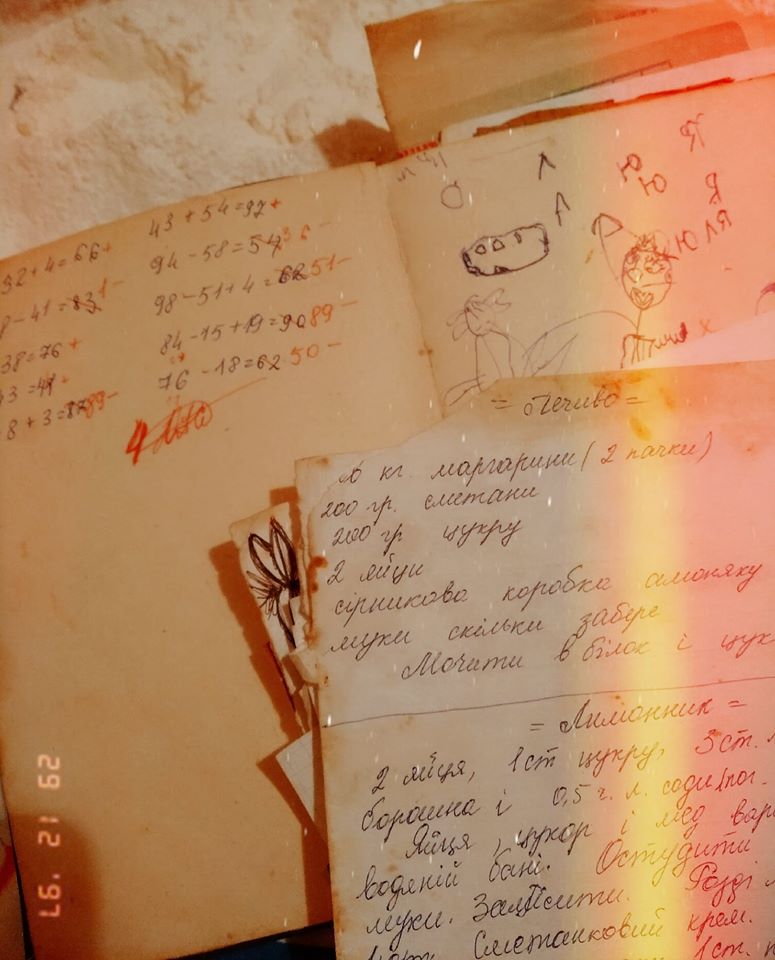 43 + 54 = 97 +
32 + 4 = 66 +
94 - 58 = 36 -
- 41 = 1 -
98 - 51 + 4 = 62 51 -
38 = 76 +
84 - 15 + 19 = 90 89 -
43 = 41 +
76 - 18 = 62 50 -
8 + 3 = 87 89 -
4
О Л Ю Я
А Ю В
ЮЛЯ
= Печиво =
кг. маргарини (2 пачки)
200 гр. сметани
200 гр цукру
2 яйци
сірникова коробка амоняку
муки скільки забере
Мочити в білок і цук
= Лимонник =
2 яйця, 1 ст цукру, 3 ст.
борошна і 0,5 г. л. соди (пог.
Яйця, цукор і мед вар
водяній бані. Остудити
муки. Замісити. Розді
Сметанковий крем.
1 ст.
29 12 '97